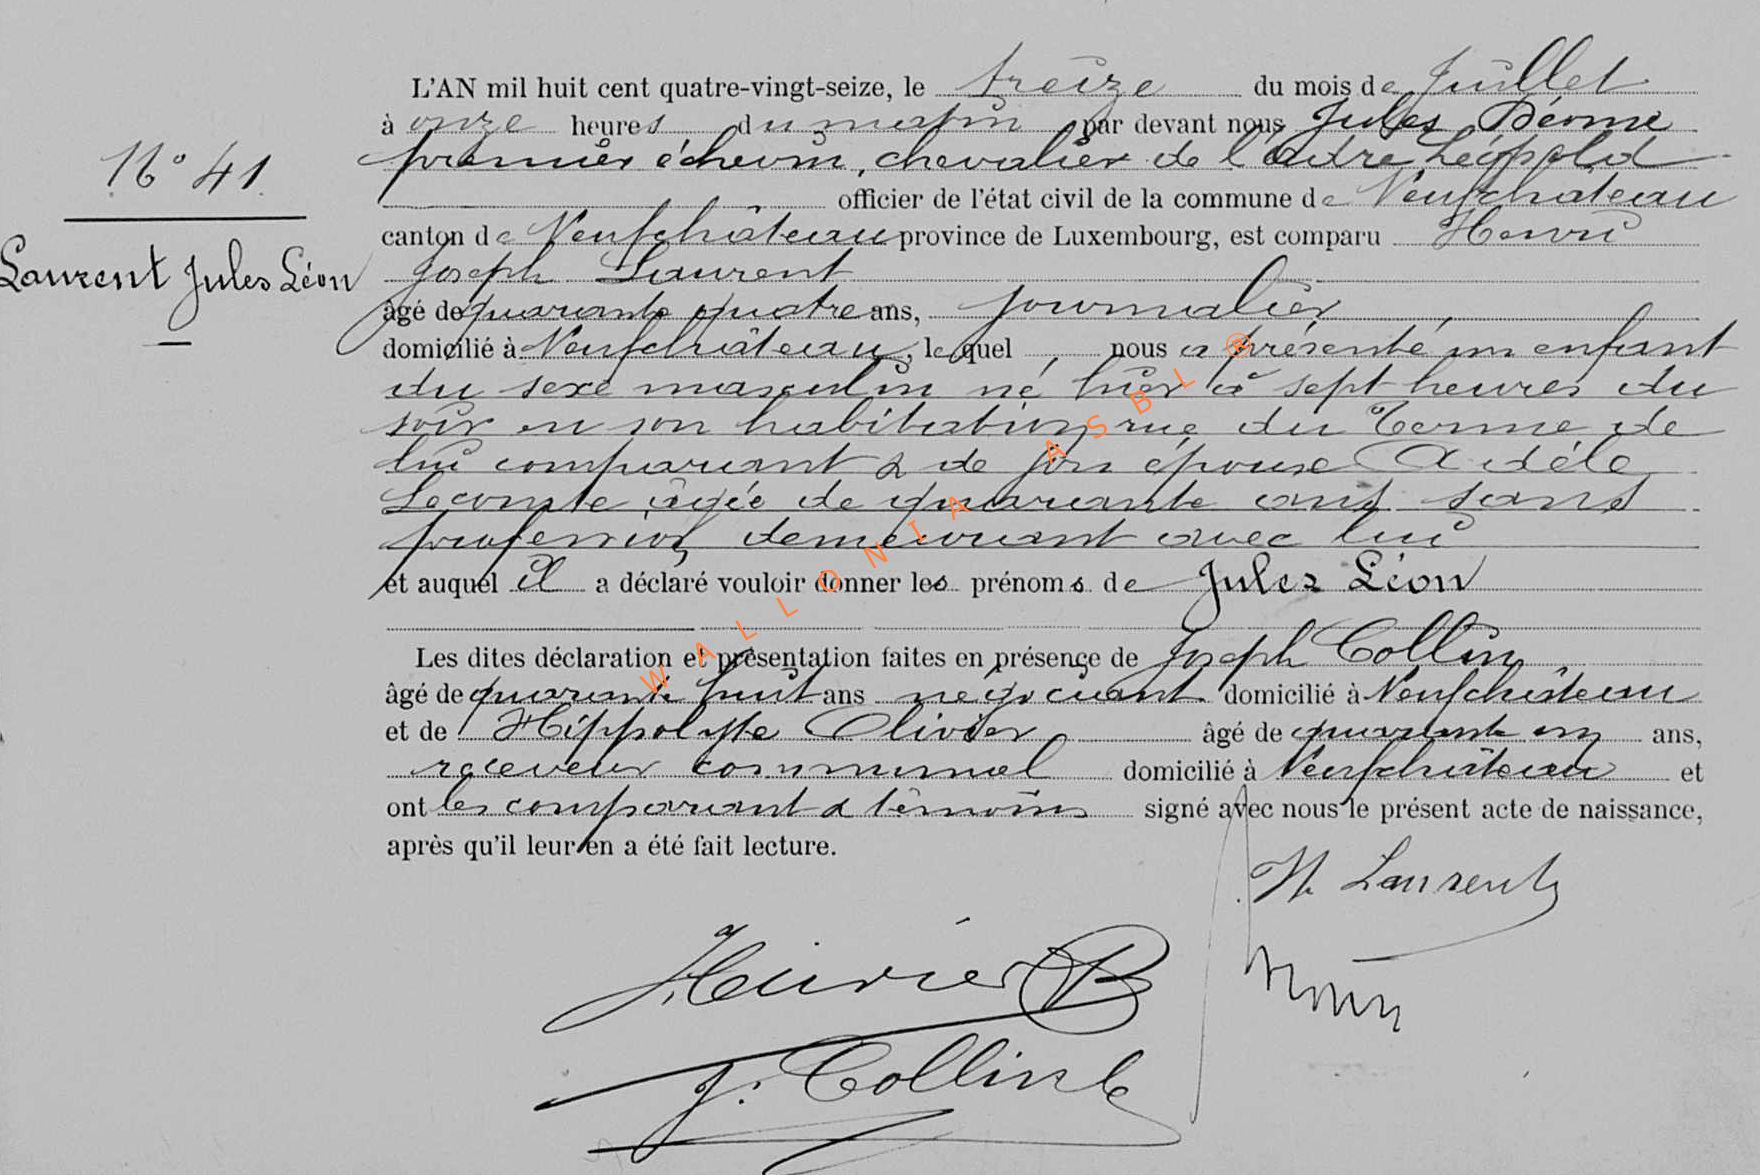 N° 41
Laurent Jules Léon
L'AN mil huit cent quatre-vingt-seize, le treize du mois de Juillet
à onze heures du matin par devant nous Jules Déome
premier échevin, chevalier de l'ordre Léopold
officier de l'état civil de la commune de Neufchâteau
canton de Neufchâteau province de Luxembourg, est comparu Henri
Joseph Laurent
âgé de quarante quatre ans, journalier,
domicilié à Neufchâteau, lequel, nous a présenté un enfant
du sexe masculin né hier à sept heures du
soir en son habitation, rue du Terme de
lui comparant & de son épouse Adéle
Lecomte âgée de quarante ans sans
profession, demeurant avec lui
et auquel il a déclaré vouloir donner les prénoms de Jules Léon
Les dites déclaration et présentation faites en présence de Joseph Collin,
âgé de quarante huit ans négociant domicilié à Neufchâteau
et de Hippolyte Olivier âgé de quarante un ans,
receveur communal domicilié à Neufchâteau et
ont les comparant & témoins signé avec nous le présent acte de naissance,
après qu'il leur en a été fait lecture.
H. Laurent
J. Collin
WALLONIA ASBL ®